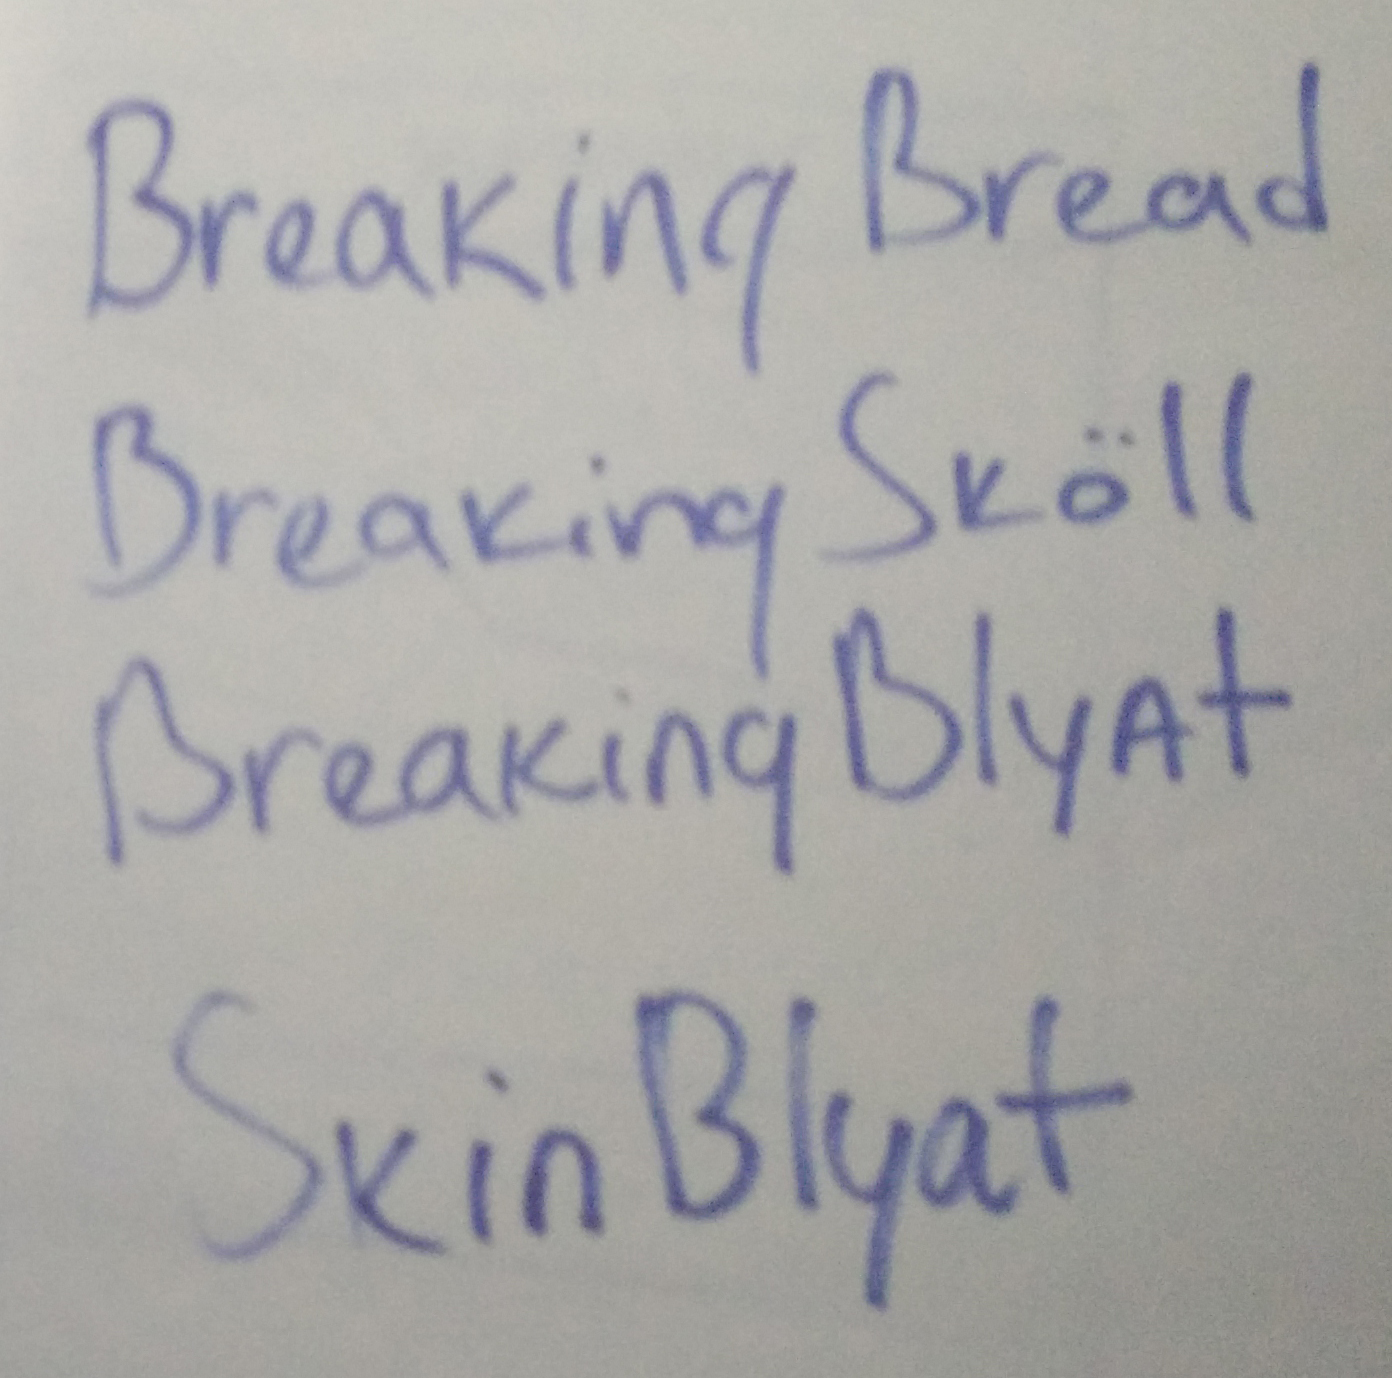 Breaking Bread
Breaking Sköll
Breaking BlyAt
Skin Blyat